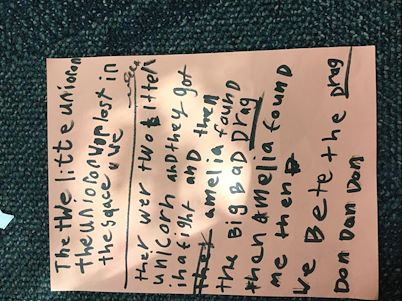 The twe little unioron
the unioron wer lost in
the space
ther wer two littel
unicorn and they got
in a fight and then
they amelia found
the BIG BAD Drag
then Amelia found
me then
we Bete the Drag
Don Dan Dom